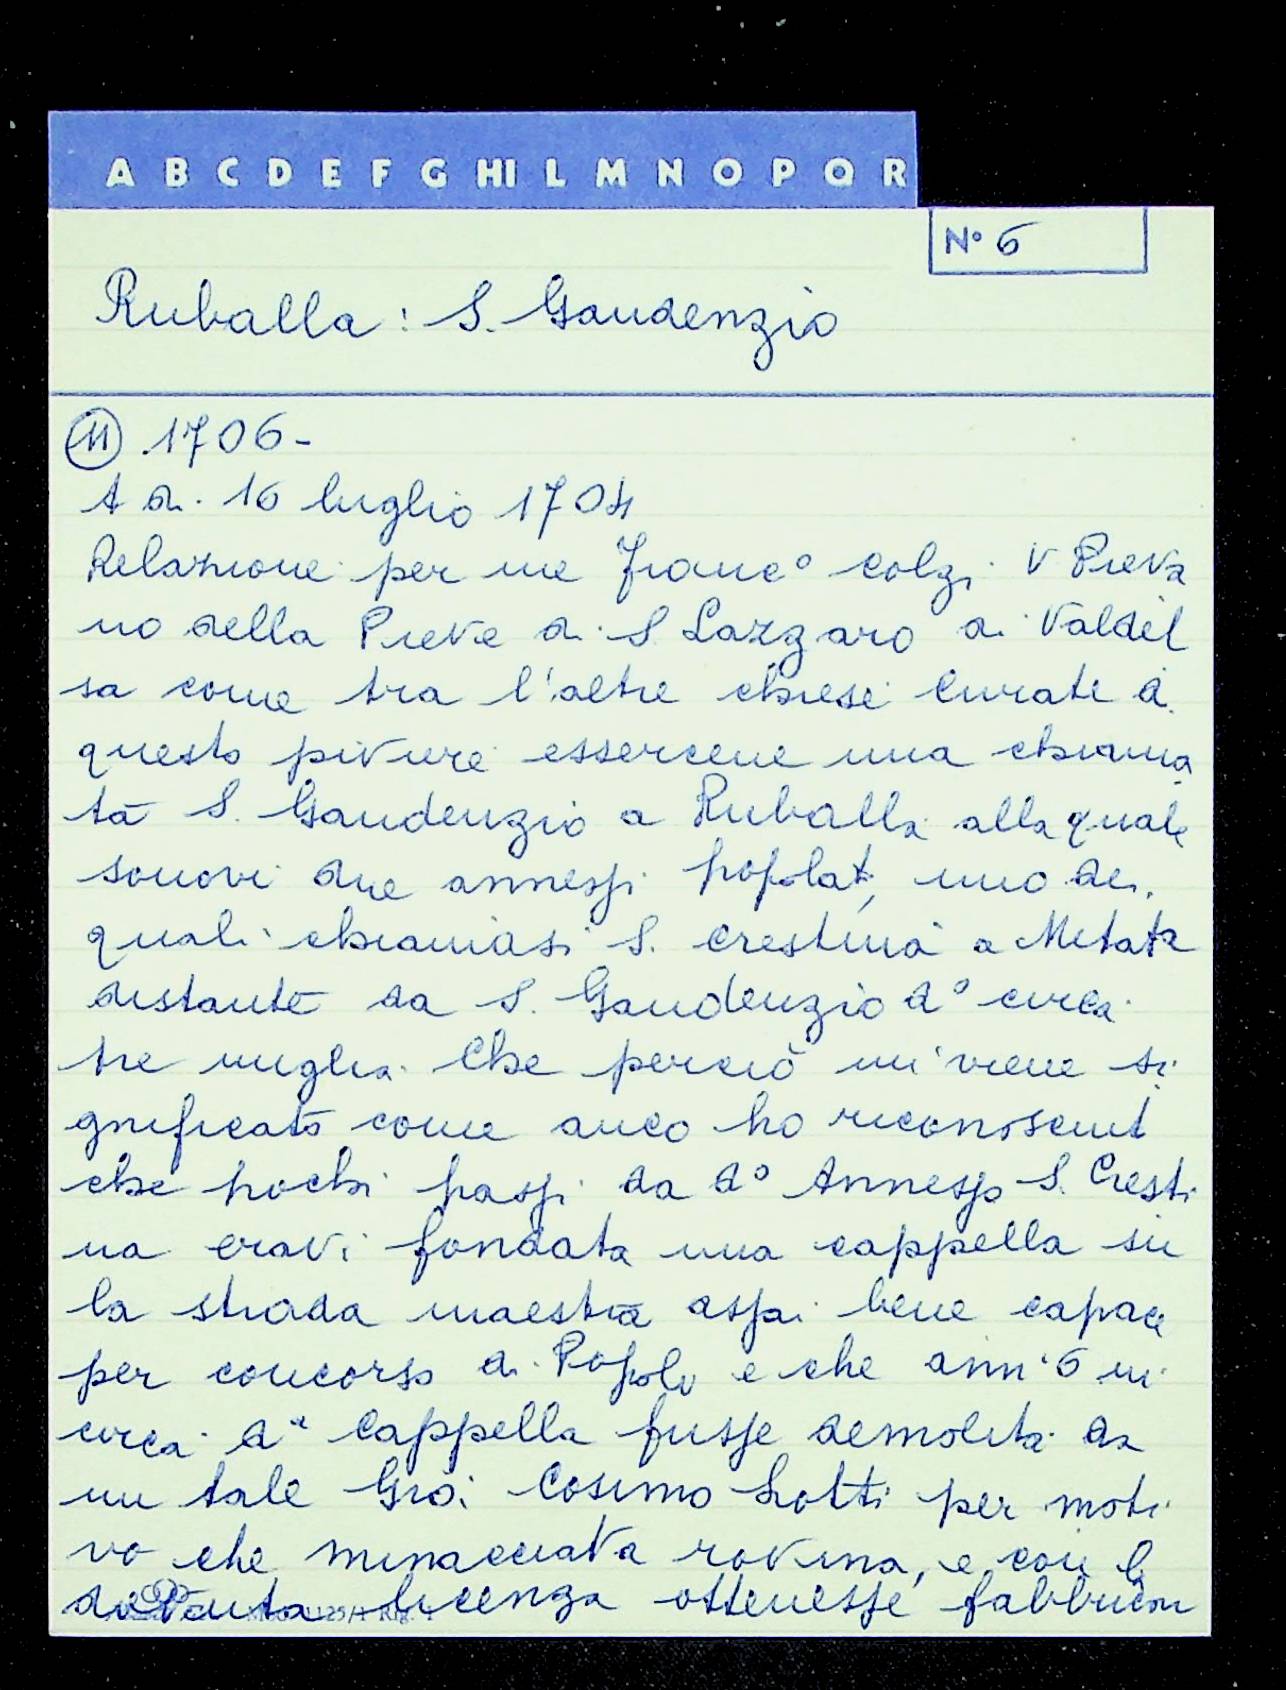 A B C D E F G HI L M N O P Q R
N° 6
Ruballa: S. Gaudenzio
11 .1706-
A di 16 luglio 1704
Relazione per me Franc° Colzi V Pieva
no della Pieve di S Lazzaro di Valdel
sa come tra l'altre chiese Curate di
questo piviere essercene una chiama
ta S. Gaudenzio a Ruballa alla quale
sonovi due annessi popolat, uno dei
quali chiamasi S. Crestina a Metata
distante da S. Gaudenzio d° circa
tre miglia. Che perciò mi viene si
gnificato come anco ho riconosciut
che pochi passi da d° Annesso S. Cresti
na eravi fondata una cappella su
la strada maestra assai bene capace
per concorso di Popolo e che anni 6 in
circa da Cappella fusse demolita da
un tale Gio: Cosimo Lotti per moti
vo che minacciava rovina, e con la
devuta licenza ottenesse fabbricar